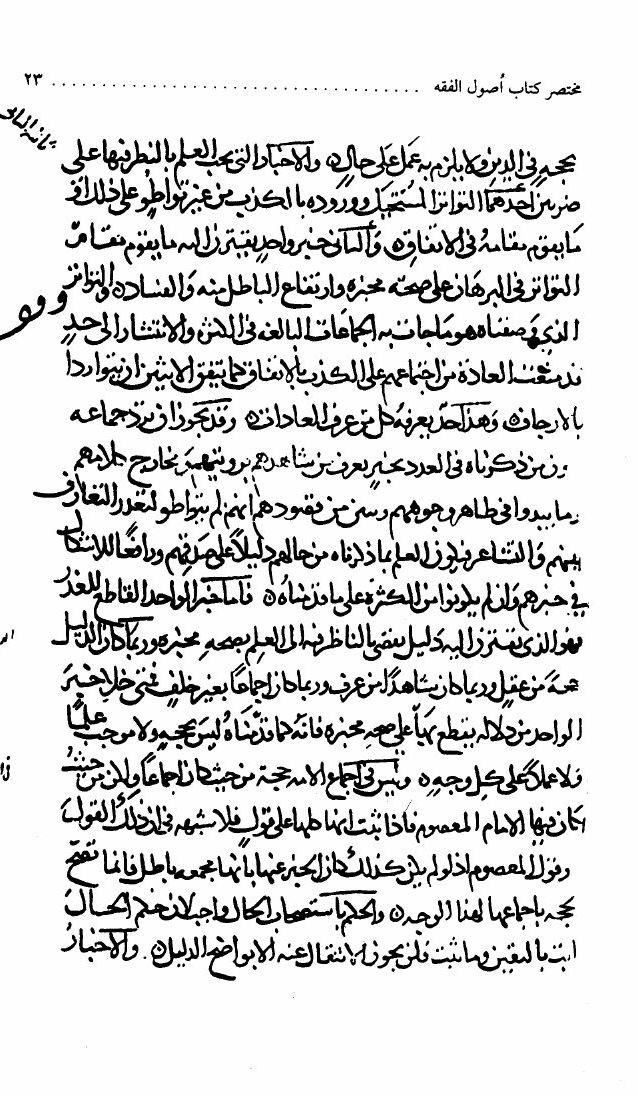 مختصر كتاب أصول الفقه ........ ٢٣
بحجة في الدين ولا يلزم به عمل على حال والاخبار التي يجب العلم بالنظر فيها على
ضربين احدهما التواتر المستحيل وروده بالكذب من غير تواطو على ذلك او
ما يقوم مقامه في الاتفاق والثاني خبر واحد يقترن اليه ما يقوم مقام
التواتر في البرهان على صحة مخبره وارتفاع الباطل منه والفساد والتواتر
الذي وصفناه هو ما جات به الجماعات البالغة في الكثرة والانتشار الى حد
قد منعت العادة من اجتماعهم على الكذب بالاتفاق كما يتفق الاثنين ان يتواردا
بالارجاف وهذا حد يعرفه كل من عرف العادات وقد يجوز ان ترد جماعة
دون من ذكرناه في العدد بخبر يعرف من شاهدهم برويتهم مخارج كلامهم
وما يبدوا في ظاهر وجوههم وبين من قصودهم انهم لم يتواطو لتعذر التعارف
بينهم والتشاعر فيكون العلم بما ذكرناه من حالهم دليلا على صدقهم ورافعا للاشكال
في خبرهم وان لم يكونوا من الكثرة على ما قدمناه فاما خبر الواحد القاطع للعذر
فهو الذي يقترن اليه دليل يفضي بالناظر فيه الى العلم بصحة مخبره وربما كان الدليل
حجة من عقل وربما كان شاهدا من عرف وربما كان اجماعا بغير خلف فمتى خلا خبر
الواحد من دلالة يقطع بها على صحة مخبره فانه كما قدمناه ليس بحجة ولا موجب علما
ولا عملا على كل وجه وليس في اجماع الامة حجة من حيث كان اجماعا ولكن من حيث
كان فيها الامام المعصوم فاذا ثبت انها كلها على قول فلا شبهة في ان ذلك القول
وقول المعصوم اذ لو لم يكن كذلك كان الخبر عنها بانها مجمعه باطل فانما تصح
بحجه باجماعها لهذا الوجه والحكم باستصحاب الحال واجب لان حكم الحال
ابت باليقين وما ثبت فلن يجوز الانتقال عنه الا بواضح الدليل والاخبار